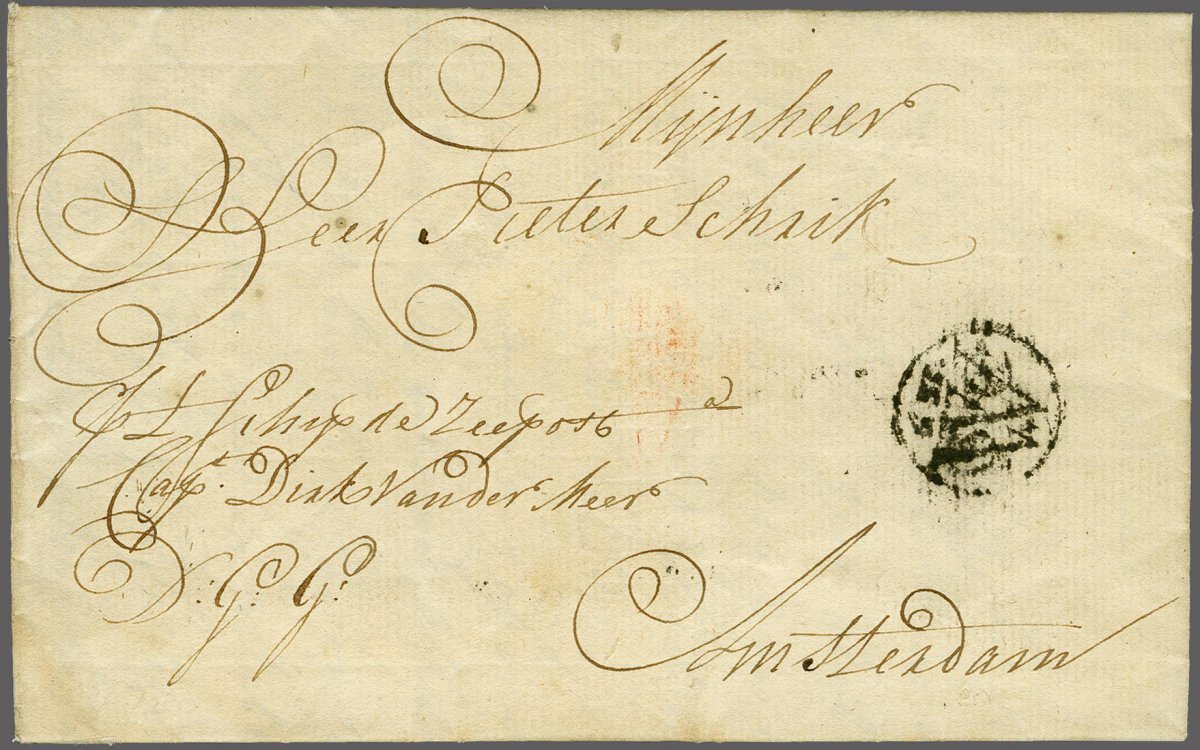 Mijnheer
D Heer Pieter Schrik
p:r 't Schip de Zeepost
Capt. Dirk Vander Meer
D: G: G:
Amsterdam